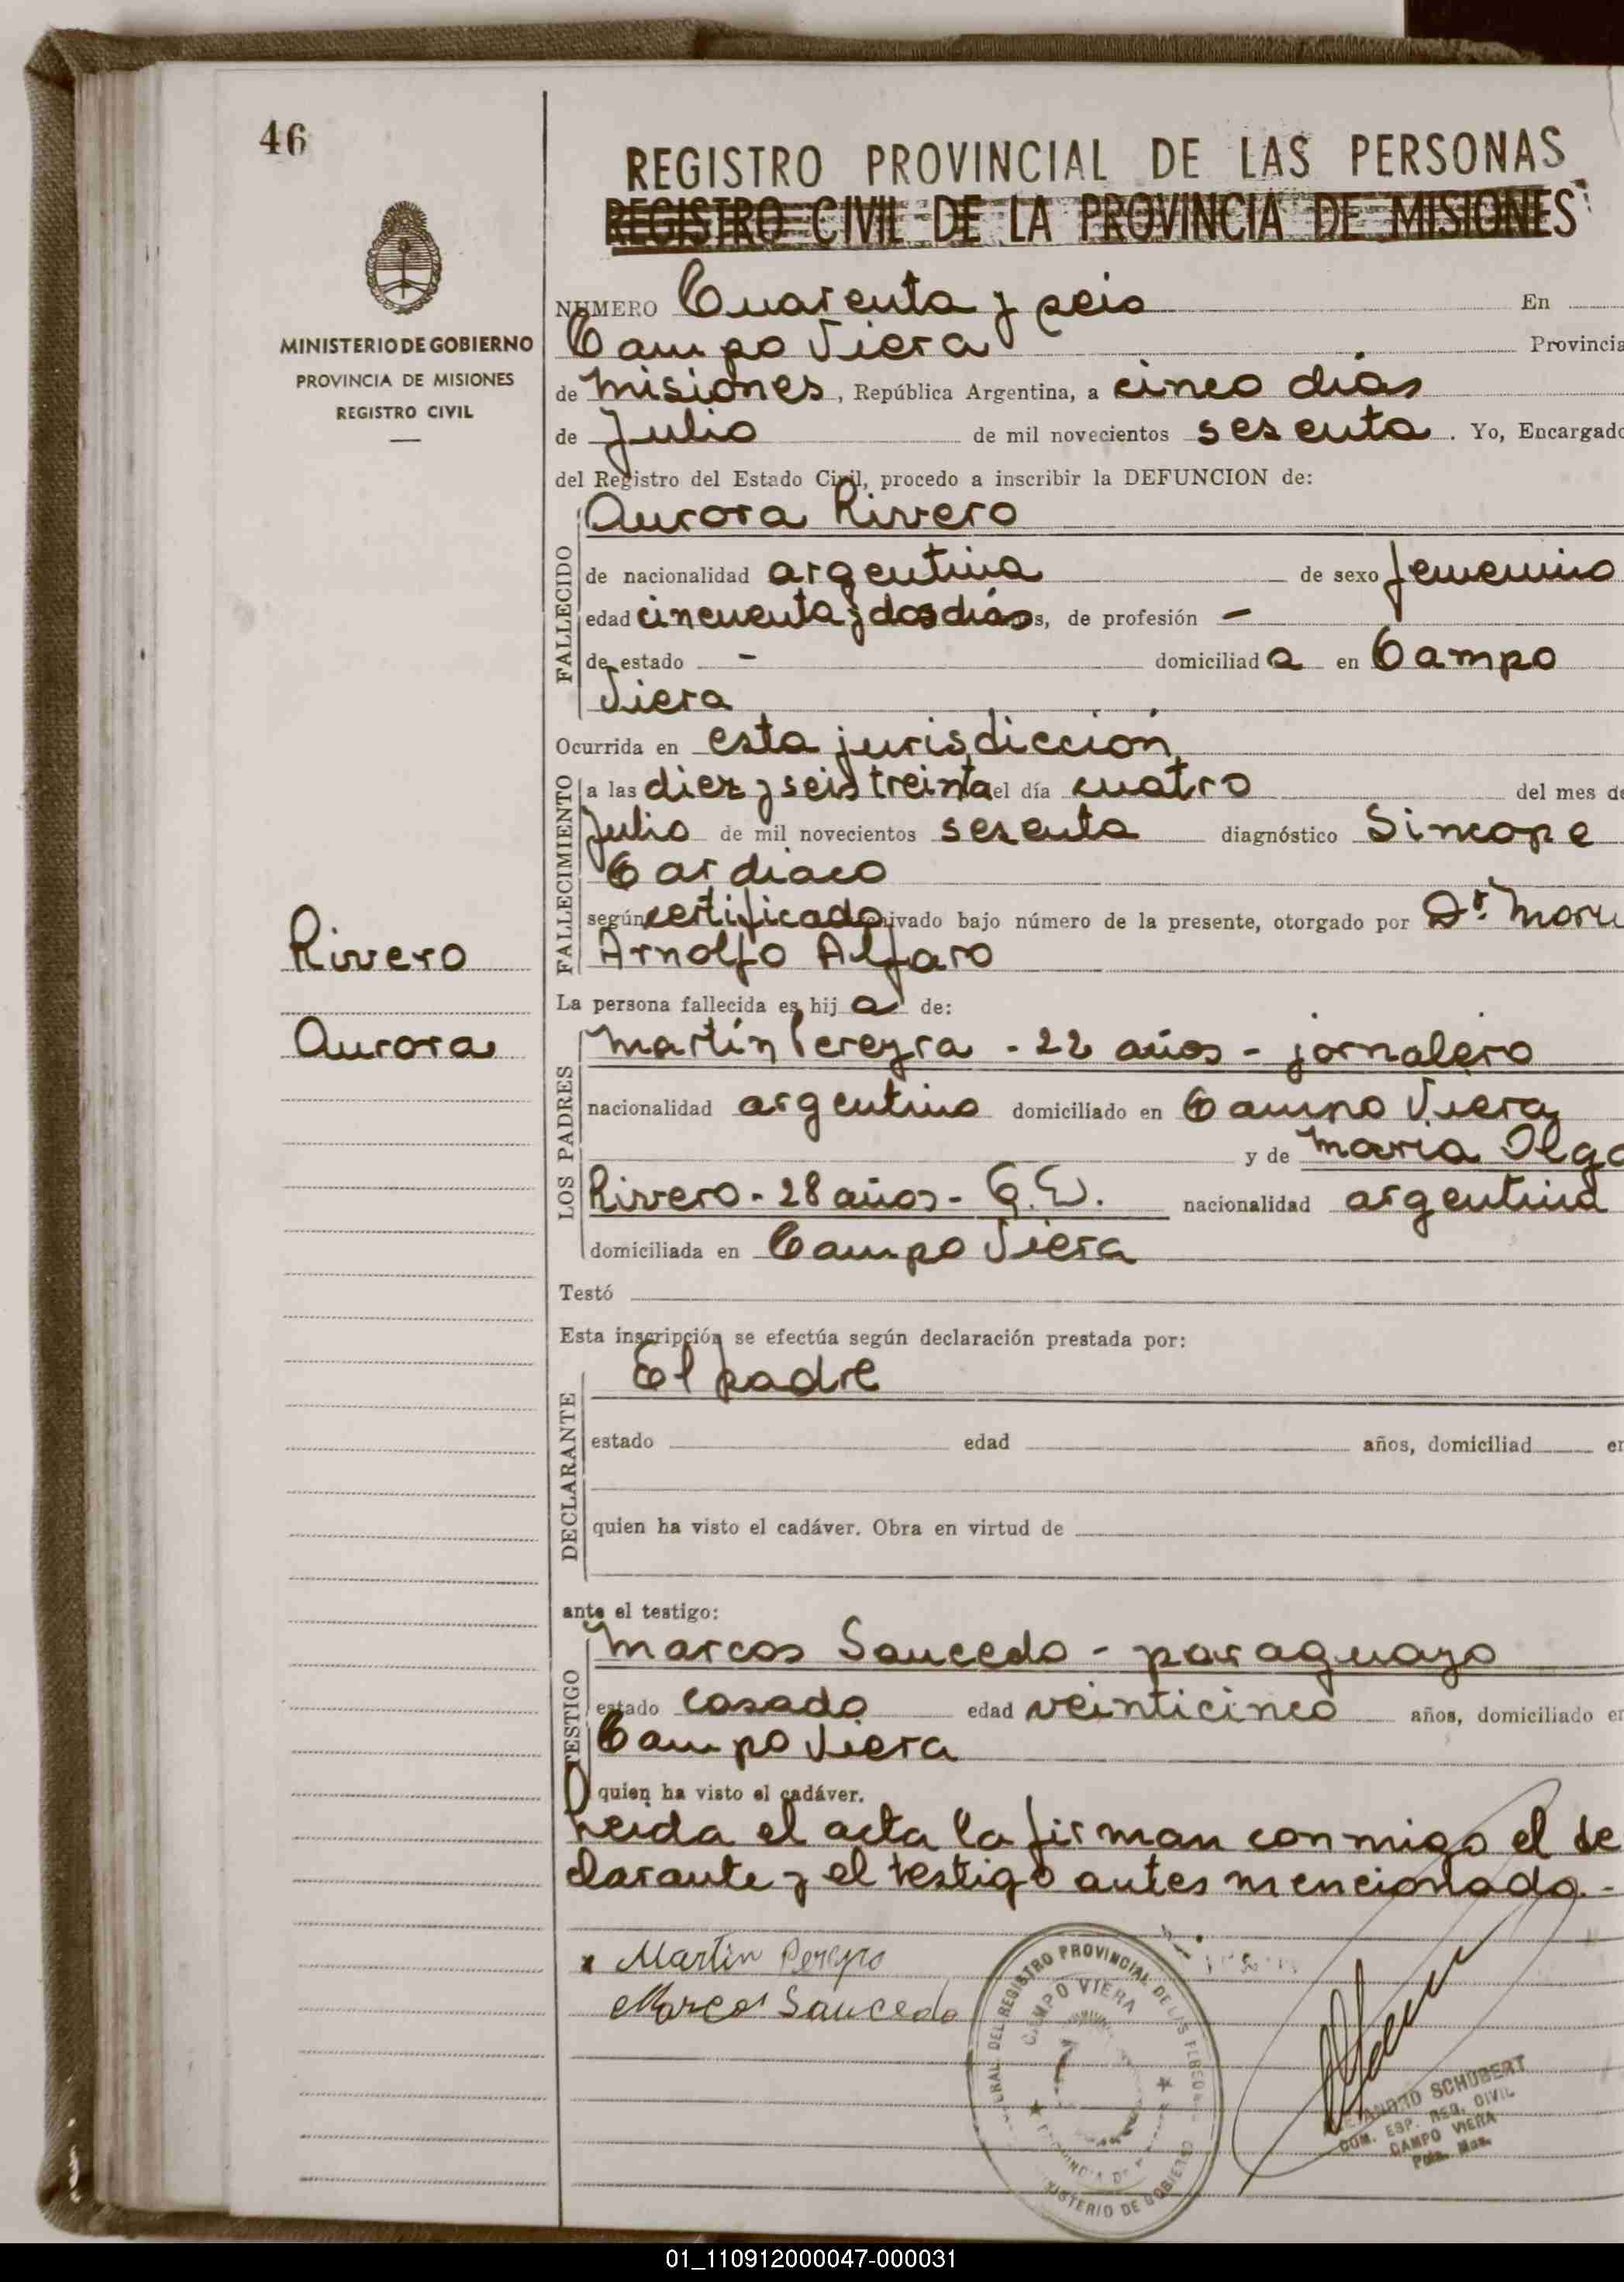 46
MINISTERIO DE GOBIERNO
PROVINCIA DE MISIONES
REGISTRO CIVIL
Rivero
Aurora
REGISTRO PROVINCIAL DE LAS PERSONAS
REGISTRO CIVIL DE LA PROVINCIA DE MISIONES
NUMERO Cuarenta y seis En
Campo Viera Provincia
de Misiones, República Argentina, a cinco días
de Julio de mil novecientos sesenta. Yo, Encargado
del Registro del Estado Civil, procedo a inscribir la DEFUNCION de:
FALLECIDO
Aurora Rivero
de nacionalidad argentina de sexo femenino
edad cincuenta y dos días, de profesión -
de estado - domiciliada en Campo
Viera
Ocurrida en esta jurisdicción
FALLECIMIENTO
a las diez y seis treinta el día cuatro del mes de
Julio de mil novecientos sesenta diagnóstico Sincope
Cardiaco
según certificado archivado bajo número de la presente, otorgado por Dr.
Arnolfo Alfaro
La persona fallecida es hija de:
LOS PADRES
Martín Pereyra - 22 años - jornalero
nacionalidad argentino domiciliado en Campo Viera
y de María Olga
Rivero - 28 años - Q.D. nacionalidad argentina
domiciliada en Campo Viera
Testó
Esta inscripción se efectúa según declaración prestada por:
DECLARANTE
El padre
estado edad años, domiciliad en
quien ha visto el cadáver. Obra en virtud de
ante el testigo:
TESTIGO
Marcos Saucedo - paraguayo
estado casado edad veinticinco años, domiciliado en
Campo Viera
quien ha visto el cadáver.
Leida el acta la firman conmigo el de
clarante y el testigo antes mencionado.-
x Martin Pereyra
Marcos Saucedo
DEL REGISTRO PROVINCIAL DE LAS PERSONAS
CAMPO VIERA
MINISTERIO DE GOBIERNO
SCHUBERT
COM. ESP. REG. CIVIL
CAMPO VIERA
01_110912000047-000031